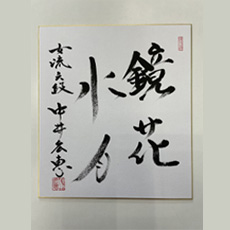 鏡花
水月
女流六段 中井広恵